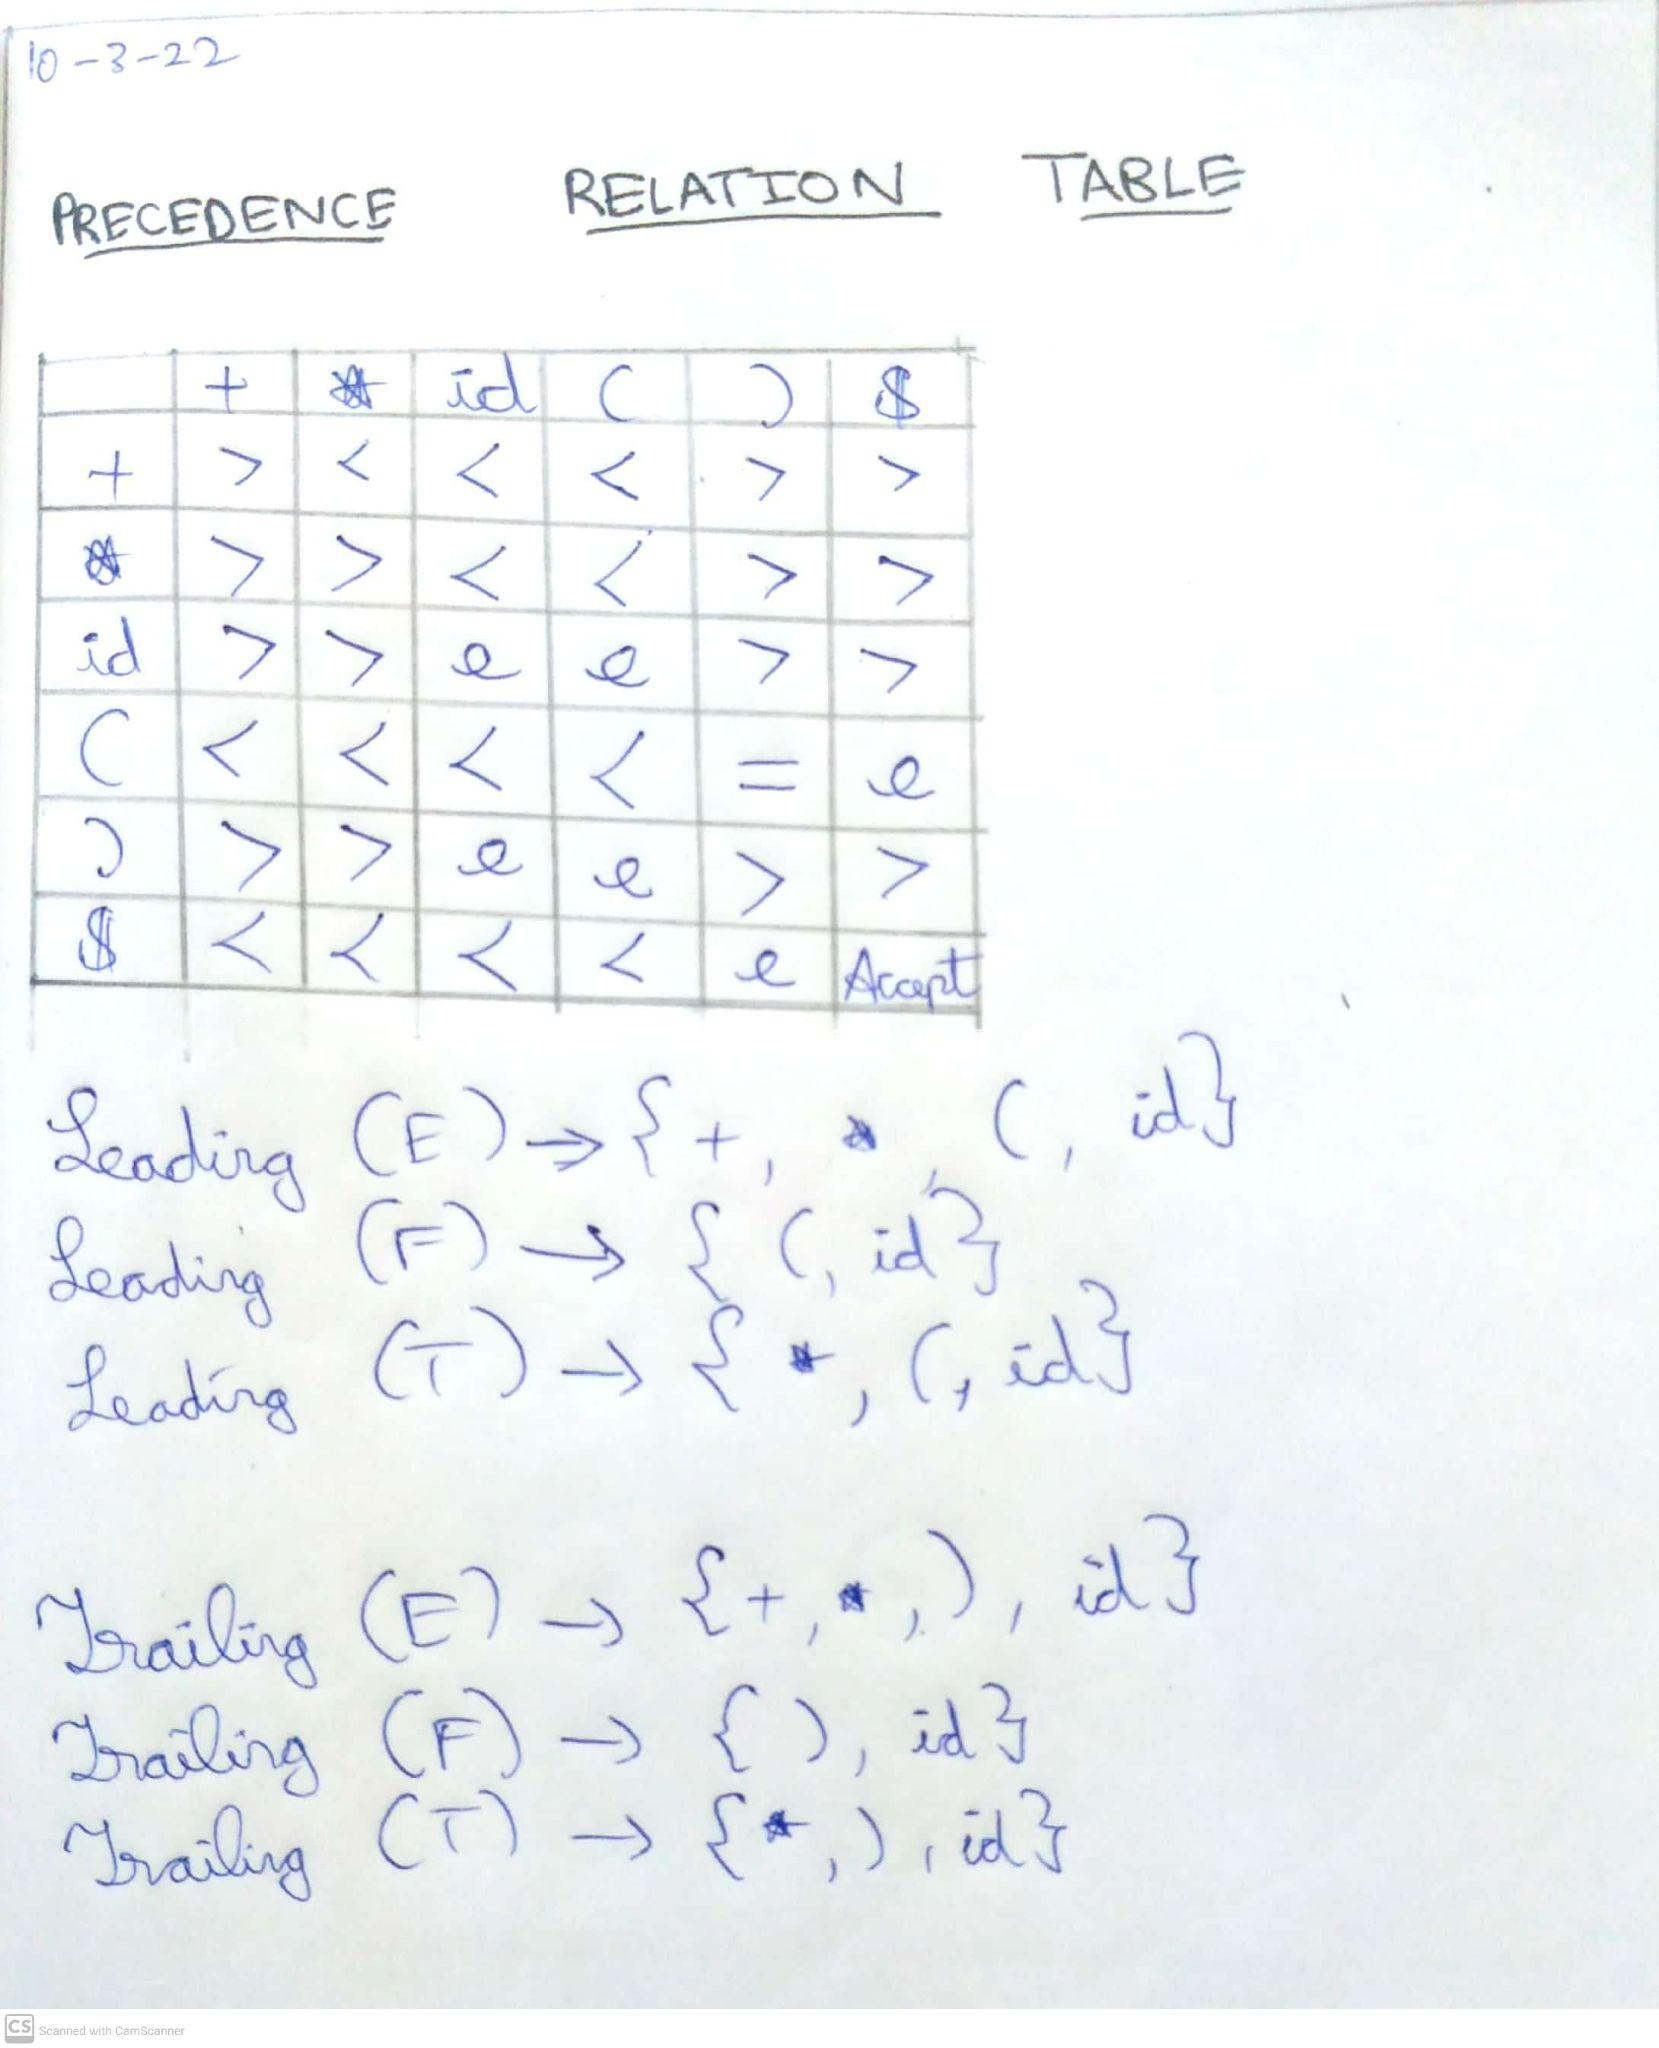 10-3-22
PRECEDENCE RELATION TABLE
+ * id ( ) $
+ > < < < > >
* > > < < > >
id > > e e > >
( < < < < = e
) > > e e > >
$ < < < < e Accept
Leading (E) → {+, *, (, id}
Leading (F) → {(, id}
Leading (T) → {*, (, id}
Trailing (E) → {+, *, ), id}
Trailing (F) → {), id}
Trailing (T) → {*, ), id}
CS Scanned with CamScanner